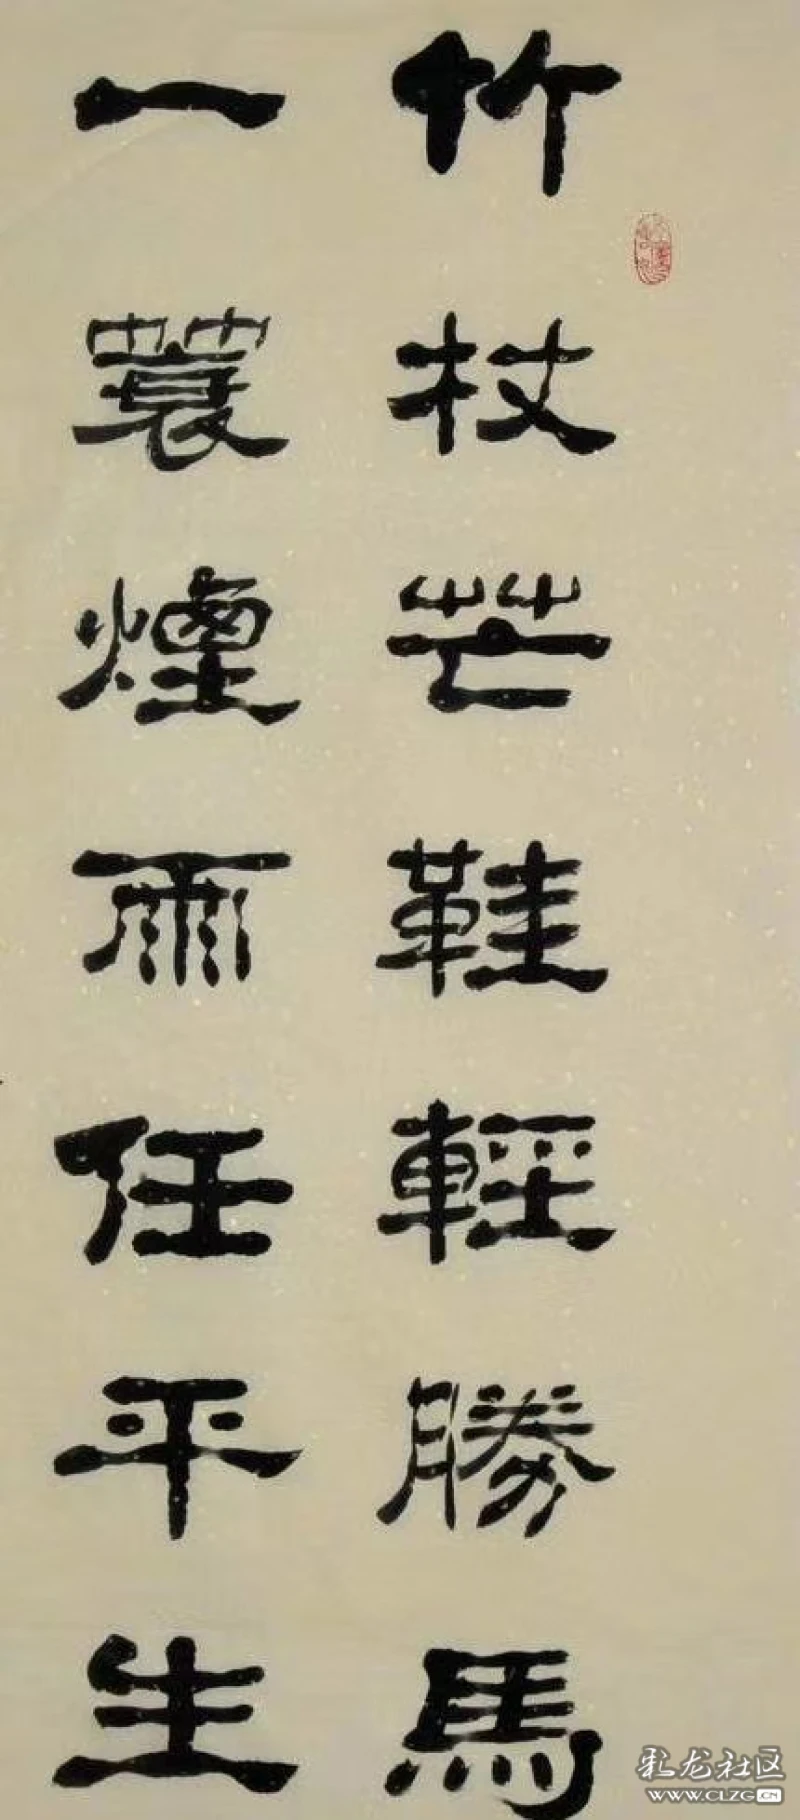 竹杖芒鞋輕勝馬
一蓑煙雨任平生
彩龙社区
WWW.CLZG.CN